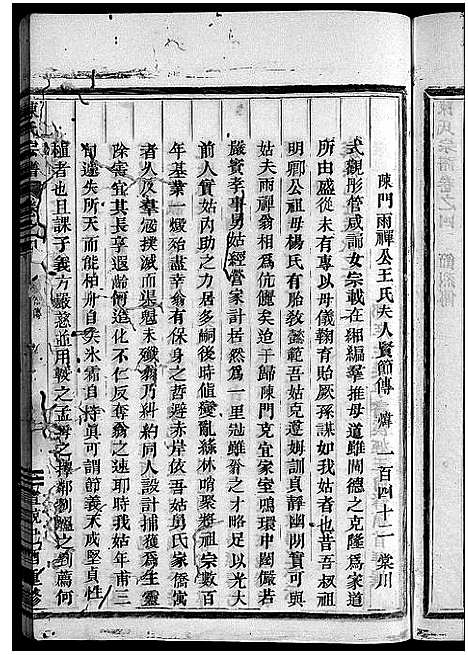 陳門雨禪公王氏夫人賢節傳 一百四十二 棠川
式觀彤管咸誦女宗載在緗編羣推母道雖周德之克隆為家道
所由盛從未有專以母儀鞠育貽厥孫謀如我姑者也昔吾叔祖
明卿公祖母楊氏有胎教懿範吾姑克遵姆訓貞靜幽閒實可
姑夫雨禪翁相為伉儷矣洎于歸陳門克宜家室鳴環中閨儼若
嚴賓孝事舅姑經營家計哲然為一里冠雖脊之才略足以光大
前人實姑內助之力居多嗣後時值變亂綠林哨聚舊宗數百
年基業一燬殆盡幸翁以明哲保身之哲避赤岸依吾姑舅氏家僑寓
者久及羣寇撲滅而裝魁未殲翁乃糾約同人設計捕獲為生靈
除害宜其長享遐齡何造化不仁反奪翁之速耶時我姑年甫三
旬遽失所天而能柏舟自矢氷霜自持真可謂節義天成堅貞性
植者也且課子義方嚴慈並用較之孟母之擇鄰劉媼之剉薦何
陳氏宗譜
陳氏宗譜卷之四 節烈傳